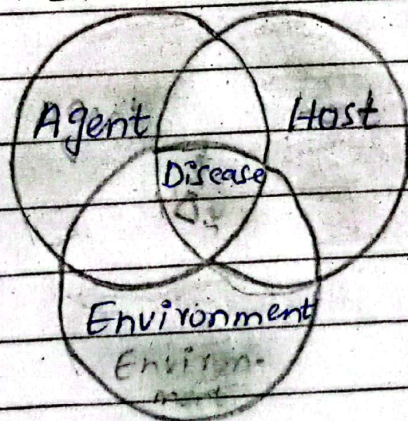 Agent
Host
Disease
Environment
Environ-
ment